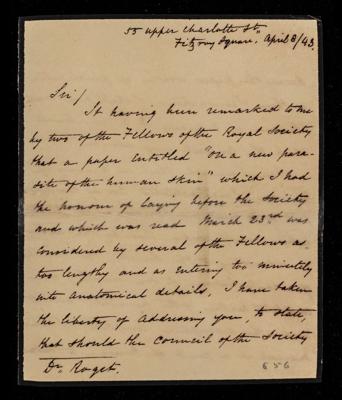 55 upper Charlotte St.,
Fitzroy Square, April 8/43.
Sir/
It having been remarked to me
by two of the Fellows of the Royal Society
that a paper entitled "On a new para-
site of the human skin" which I had
the honour of laying before the Society
and which was read March 23rd was
considered by several of the Fellows as
too lengthy and as entering too minutely
into anatomical details, I have taken
the liberty of addressing you, to state,
that should the Council of the Society
Dr. Roget.
656